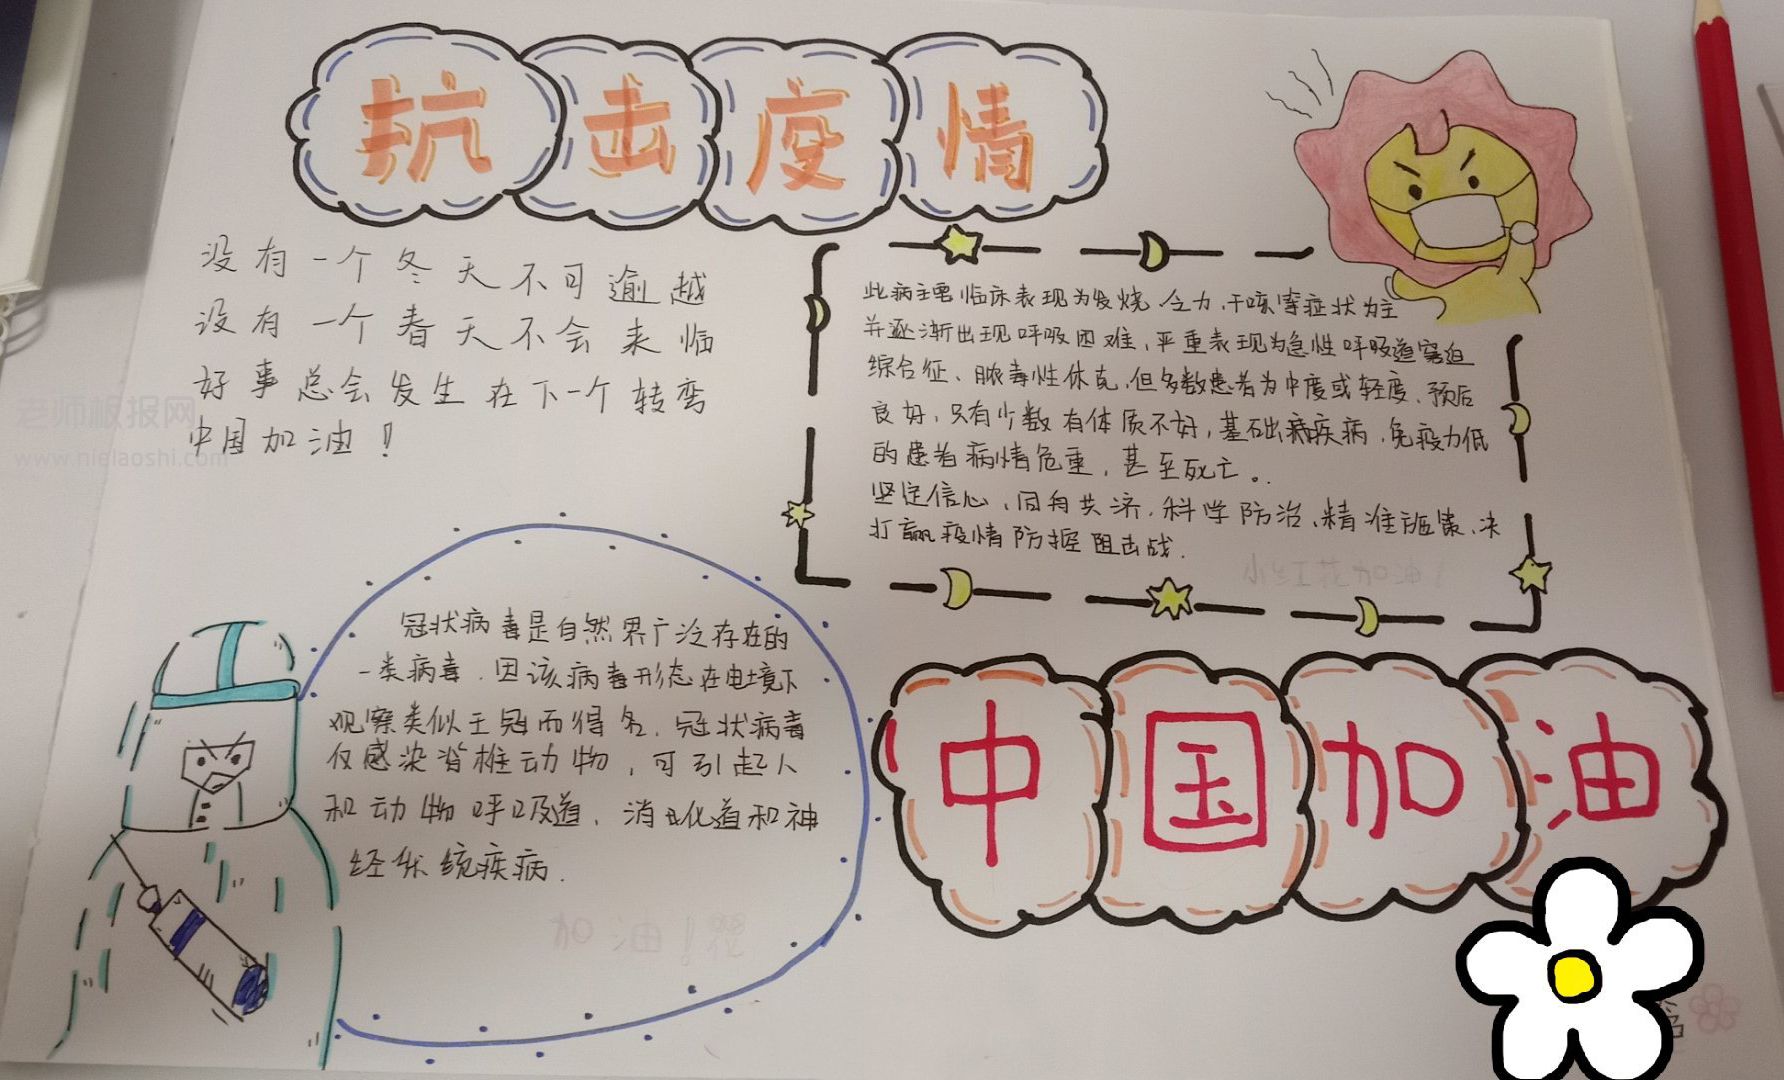 抗击疫情
没有一个冬天不可逾越
没有一个春天不会来临
好事总会发生在下一个转弯
中国加油！
老师板报网
www.nielaoshi.com
此病主要临床表现为发烧、乏力,干咳等症状为主
并逐渐出现呼吸困难,严重表现为急性呼吸道窘迫
综合征、脓毒性休克,但多数患者为中度或轻度、预后
良好,只有少数有体质不好,基础病疾病,免疫力低
的患者病情危重,甚至死亡。
坚定信心、同舟共济,科学防治、精准施策、决
打赢疫情防控阻击战.
小红花加油！
冠状病毒是自然界广泛存在的
一类病毒.因该病毒形态在电境下
观察类似王冠而得名.冠状病毒
仅感染脊椎动物,可引起人
和动物呼吸道、消化道和神
经系统疾病.
加油！
中国加油